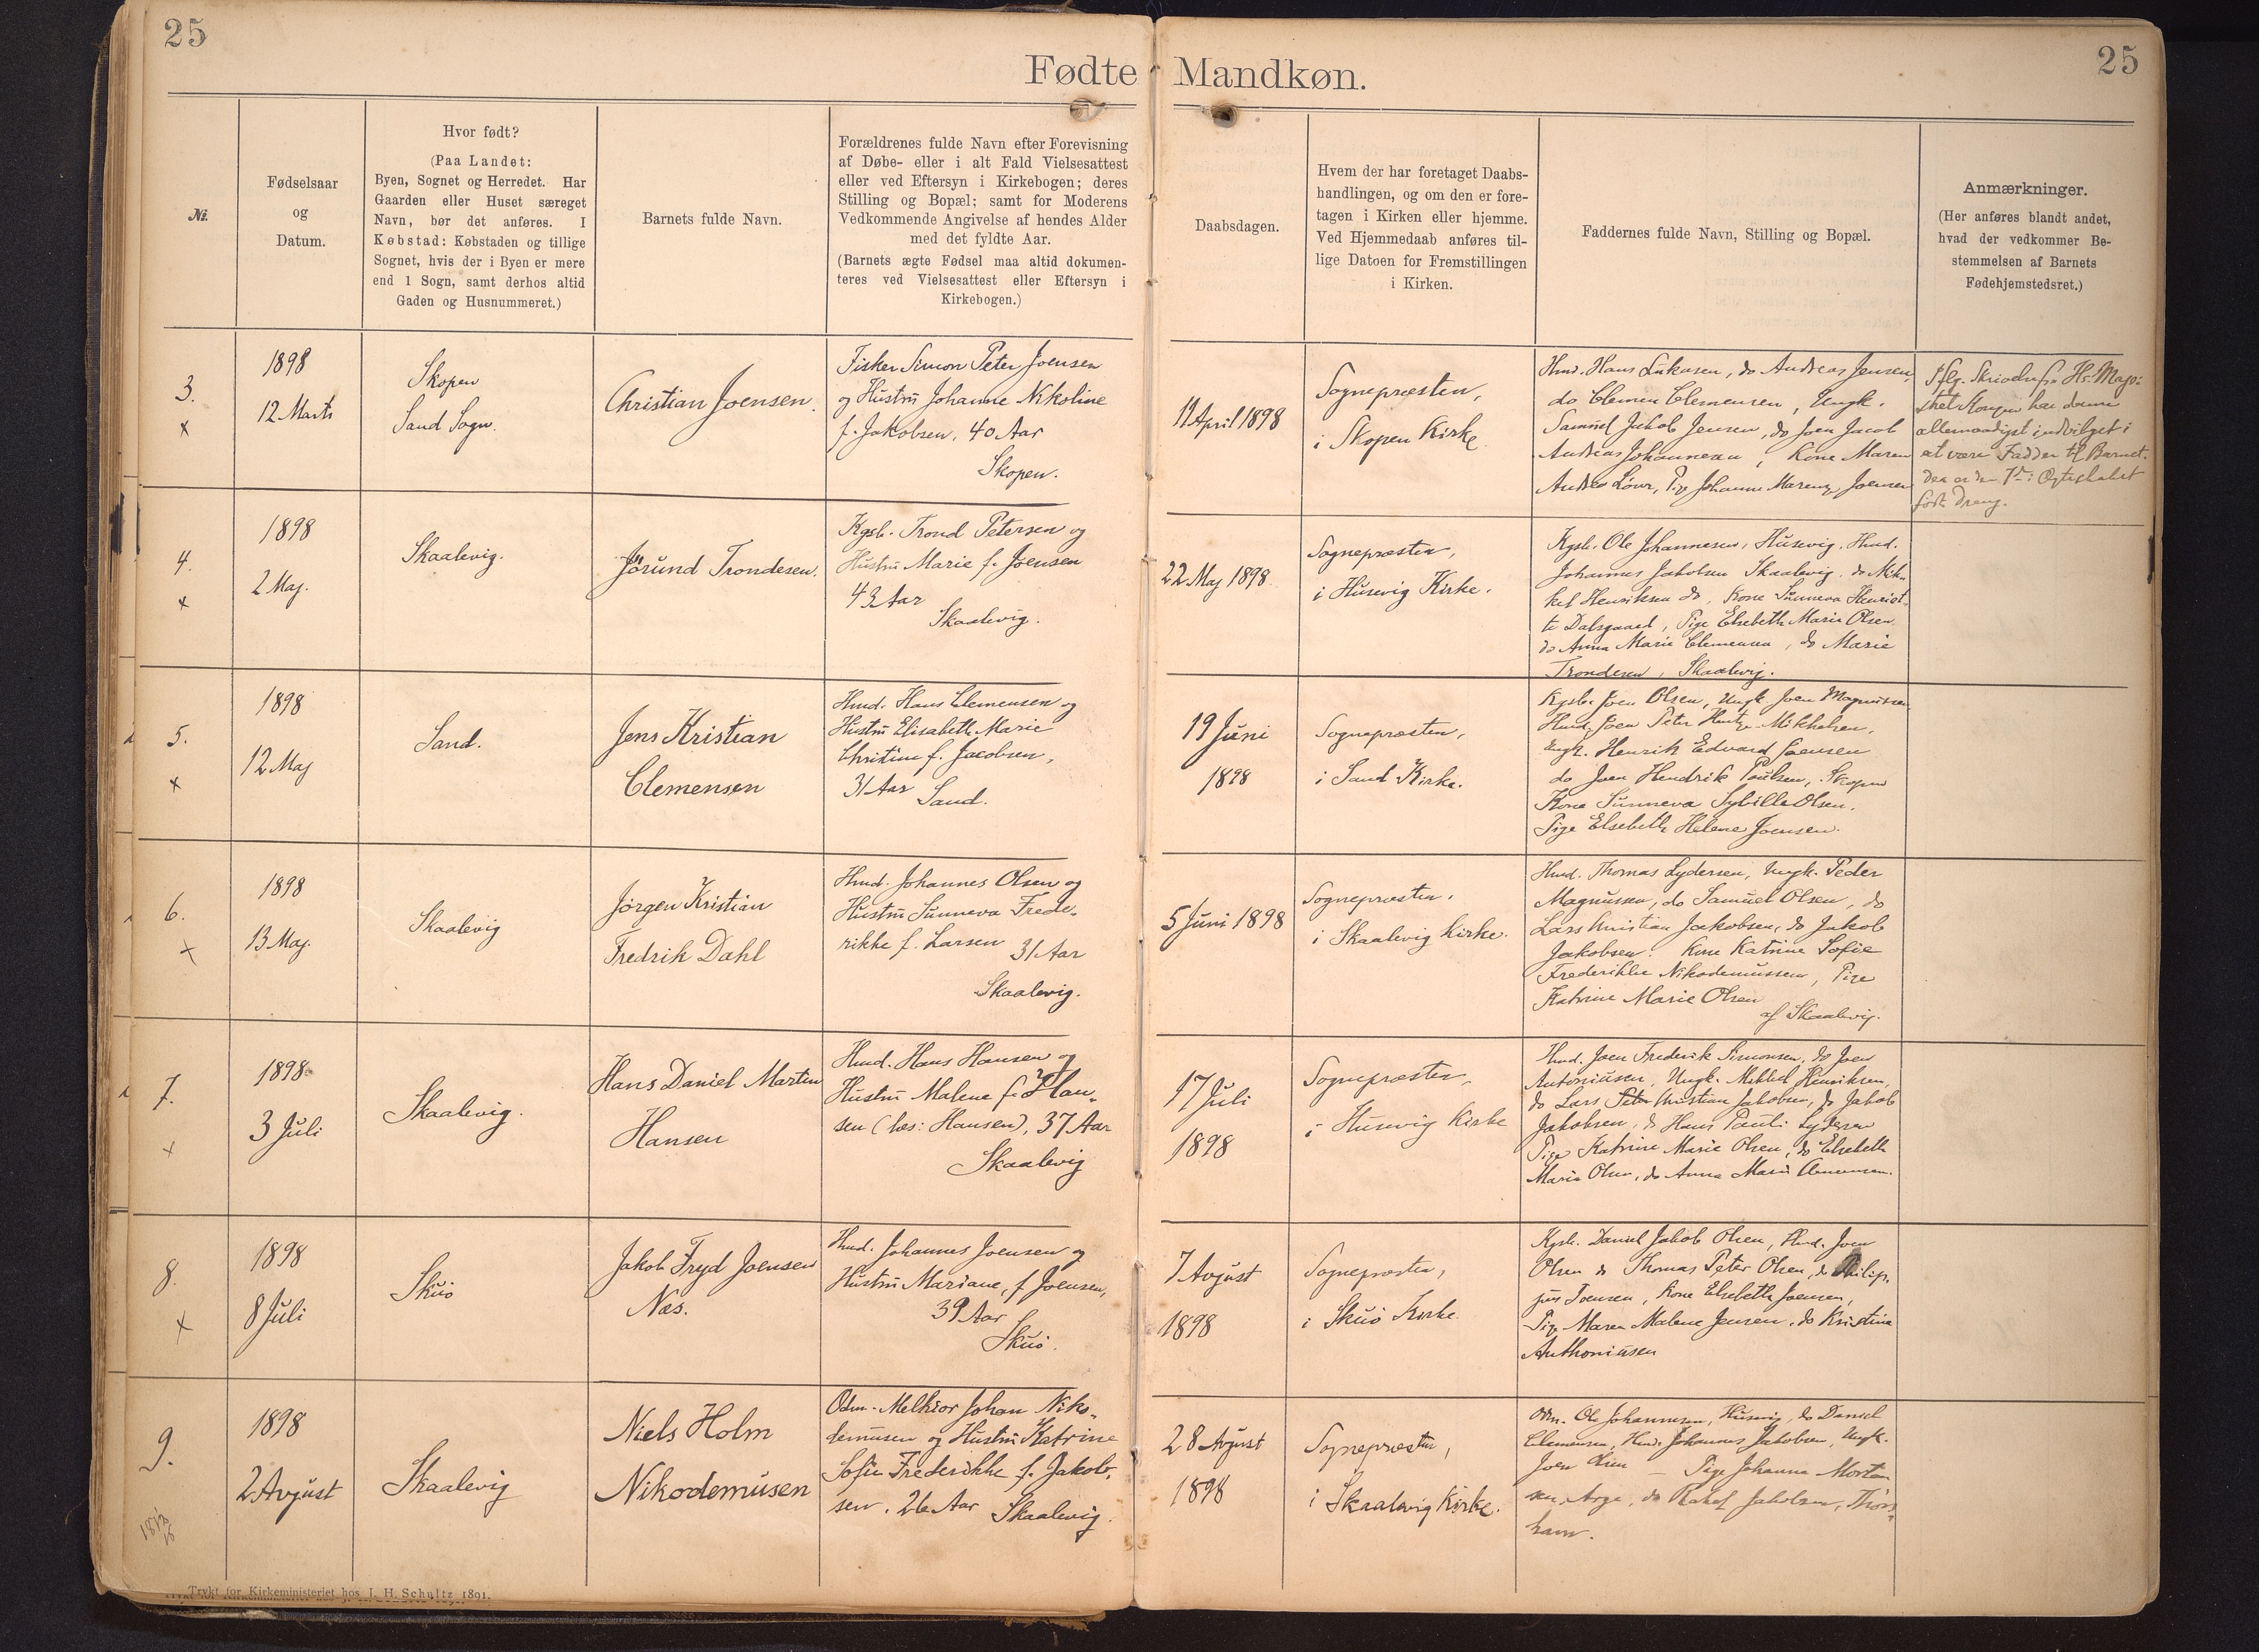 25
25
Fødte Mandkøn.
Nr.
Fødselsaar
og
Datum.
Hvor født?
(Paa Landet:
Byen, Sognet og Herredet. Har
Gaarden eller Huset særeget
Navn, bør det anføres. I
Købstad: Købstaden og tillige
Sognet, hvis der i Byen er mere
end 1 Sogn, samt derhos altid
Gaden og Husnummeret.)
Barnets fulde Navn.
Forældrenes fulde Navn efter Forevisning
af Døbe- eller i alt Fald Vielsesattest
eller ved Eftersyn i Kirkebogen; deres
Stilling og Bopæl; samt for Moderens
Vedkommende Angivelse af hendes Alder
med det fyldte Aar.
(Barnets ægte Fødsel maa altid dokumen-
teres ved Vielsesattest eller Eftersyn i
Kirkebogen.)
Daabsdagen.
Hvem der har foretaget Daabs-
handlingen, og om den er fore-
tagen i Kirken eller hjemme.
Ved Hjemmedaab anføres til-
lige Datoen for Fremstillingen
i Kirken.
Faddernes fulde Navn, Stilling og Bopæl.
Anmærkninger.
(Her anføres blandt andet,
hvad der vedkommer Be-
stemmelsen af Barnets
Fødehjemstedsret.)
3.
×
1898
12 Marts
Skopen
Sand Sogn.
Christian Joensen.
Fisker Simon Peter Joensen
og Hustru Johanne Nikoline
f. Jakobsen, 40 Aar
Skopen.
11 April 1898
Sognepræsten,
i Skopen Kirke
Hmd. Hans Lukasen, do Andreas Jensen,
do Clemen Clemensen, Ungk.
Samuel Jakob Jensen, do Joen Jacob
Andreas Johannesen, Kone Maren
Andrea, Pige Johanne Joensen
Hs. Maje-
stæt Kongen har denne
allernaadigst indvilget i
at være Fadder til Barnet.
født Dreng.
4.
×
1898
2 Maj.
Skaalevig.
Jørund Trondesen.
Kgsb. Trond Petersen og
Hustru Marie f. Joensen
43 Aar
Skaalevig.
22 Maj 1898
Sognepræsten,
i Husevig Kirke.
Kgsb. Ole Johannesen, Husevig, Hmd.
Johannes Jakobsen Skaalevig, do Mik-
kel Henriksen do, Kone Sunneva Henriet-
te Dalsgaard, Pige Elsebeth Marie Olsen
do Anna Marie Clemensen, do Marie
Trondesen, Skaalevig.
5.
×
1898
12 Maj
Sand.
Jens Kristian
Clemensen
Hmd. Hans Clemensen og
Hustru Elisabeth Marie
Christine f. Jacobsen,
31 Aar Sand.
19 Juni
1898
Sognepræsten,
i Sand Kirke.
Kgsb. Joen Olsen, Ungk Joen Magnussen
Hmd. Joen Peter Hentze Mikkelsen,
Ungk. Henrik Edvard Joensen
do Joen Hendrik Poulsen, Skopen
Kone Sunneva Sybille Olsen.
Pige Elsebeth Helene Joensen.
6.
×
1898
13 Maj.
Skaalevig
Jørgen Kristian
Fredrik Dahl
Hmd. Johannes Olsen og
Hustru Sunneva Frede-
rikke f. Larsen 31 Aar
Skaalevig.
5 Juni 1898
Sognepræsten,
i Skaalevig Kirke.
Hmd. Thomas Lydersen, Ungk. Peder
Magnussen, do Samuel Olsen, do
Lars Kristian Jakobsen, do Jakob
Jakobsen. Kone Katrine Sofie
Frederikke Nikodemussen, Pige
Katrine Marie Olsen
af Skaalevig.
7.
×
1898
3 Juli
Skaalevig.
Hans Daniel Martin
Hansen
Hmd. Hans Hansen og
Hustru Malene f. Han-
sen (læs: Hansen), 37 Aar
Skaalevig
17 Juli
1898
Sognepræsten,
i Husevig Kirke
Hmd. Joen Frederik Simonsen, do Joen
Antoniusen, Ungk. Mikkel Henriksen,
do Lars Peter Kristian Jakobsen, do Jakob
Jakobsen, do Hans Pauli Lydersen
Pige Katrine Marie Olsen, do Elsebeth
Marie Olsen, do Anna Marie Clemensen.
8.
×
1898
8 Juli
Skuø
Jakob Fryd Joensen
Næs.
Hmd. Johannes Joensen og
Hustru Mariane, f. Joensen,
39 Aar
Skuø.
7 Avgust
1898
Sognepræsten,
i Skuø Kirke.
Kgsb. Daniel Jakob Olsen, Hmd. Joen
Olsen do Thomas Peter Olsen, do Philip-
pus Joensen, Kone Elsebeth Joensen,
Pige Maren Malene Jensen, do Kristine
Anthoniusen
9.
1898
2 Avgust
Skaalevig
Niels Holm
Nikodemusen
Odm. Melkior Johan Niko-
demusen og Hustru Katrine
Sofie Frederikke f. Jakob-
sen. 26 Aar Skaalevig.
28 Avgust
1898
Sognepræsten,
i Skaalevig Kirke.
Odm. Ole Johannesen, Husevig, do Daniel
Clemensen, Hmd. Johannes Jakobsen, Ungk.
Joen – Pige Johanna Morten-
sen, Arge, do Rakel Jakobsen, Thors-
havn.
Trykt for Kirkeministeriet hos J. H. Schultz 1891.